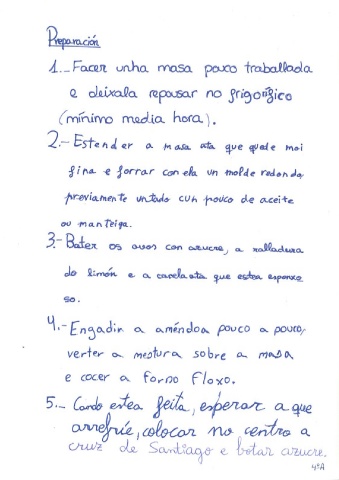 Preparación
1.- Facer unha masa pouco traballada
e deixala repousar no frigorífico
(mínimo media hora).
2.- Estender a masa ata que quede moi
fina e forrar con ela un molde redondo
previamente untado cun pouco de aceite
ou manteiga.
3.- Bater os ovos con azucre, a ralladura
do limón e a canela ata que estea esponxo
so.
4.- Engadir a améndoa pouco a pouco,
verter a mestura sobre a masa
e cocer a forno floxo.
5.- Cando estea feita, esperar a que
arrefríe, colocar no centro a
cruz de Santiago e botar azucre.
4ºA